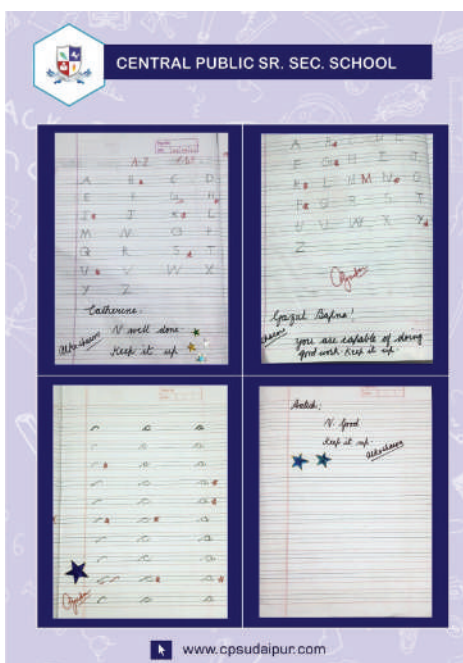 CENTRAL PUBLIC SR. SEC. SCHOOL
A-Z
A B C D
E F G H
I J K L
M N O P
Q R S T
U V W X
Y Z
Catherine:
V well done
Keep it up
A B
F G H I J
K L M M N O
P Q R S T
U V W X Y
Z
Gazul Bafna!
you are capable of doing
good work. Keep it up.
V. Good
Keep it up.
www.cpsudaipur.com